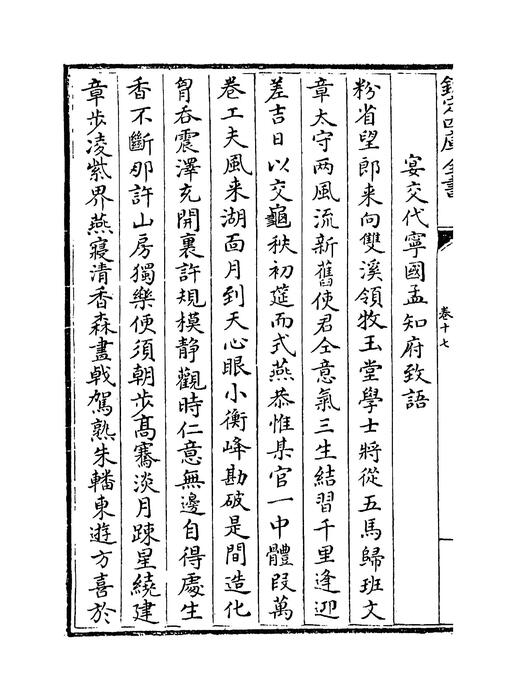 欽定四庫全書
卷十七
宴交代寧國孟知府致語
粉省望郎来向雙溪領牧玉堂學士將從五馬歸班文
章太守两風流新舊使君仝意氣三生結習千里逢迎
差吉日以交龜秩初筵而式燕恭惟某官一中體段萬
卷工夫風来湖面月到天心眼小衡峰勘破是間造化
胷吞震澤充開裏許規模静觀時仁意無邊自得處生
香不斷那許山房獨樂便須朝步髙騫淡月踈星繞建
章步凌紫界燕寢清香森畫戟駕熟朱轓東遊方喜於